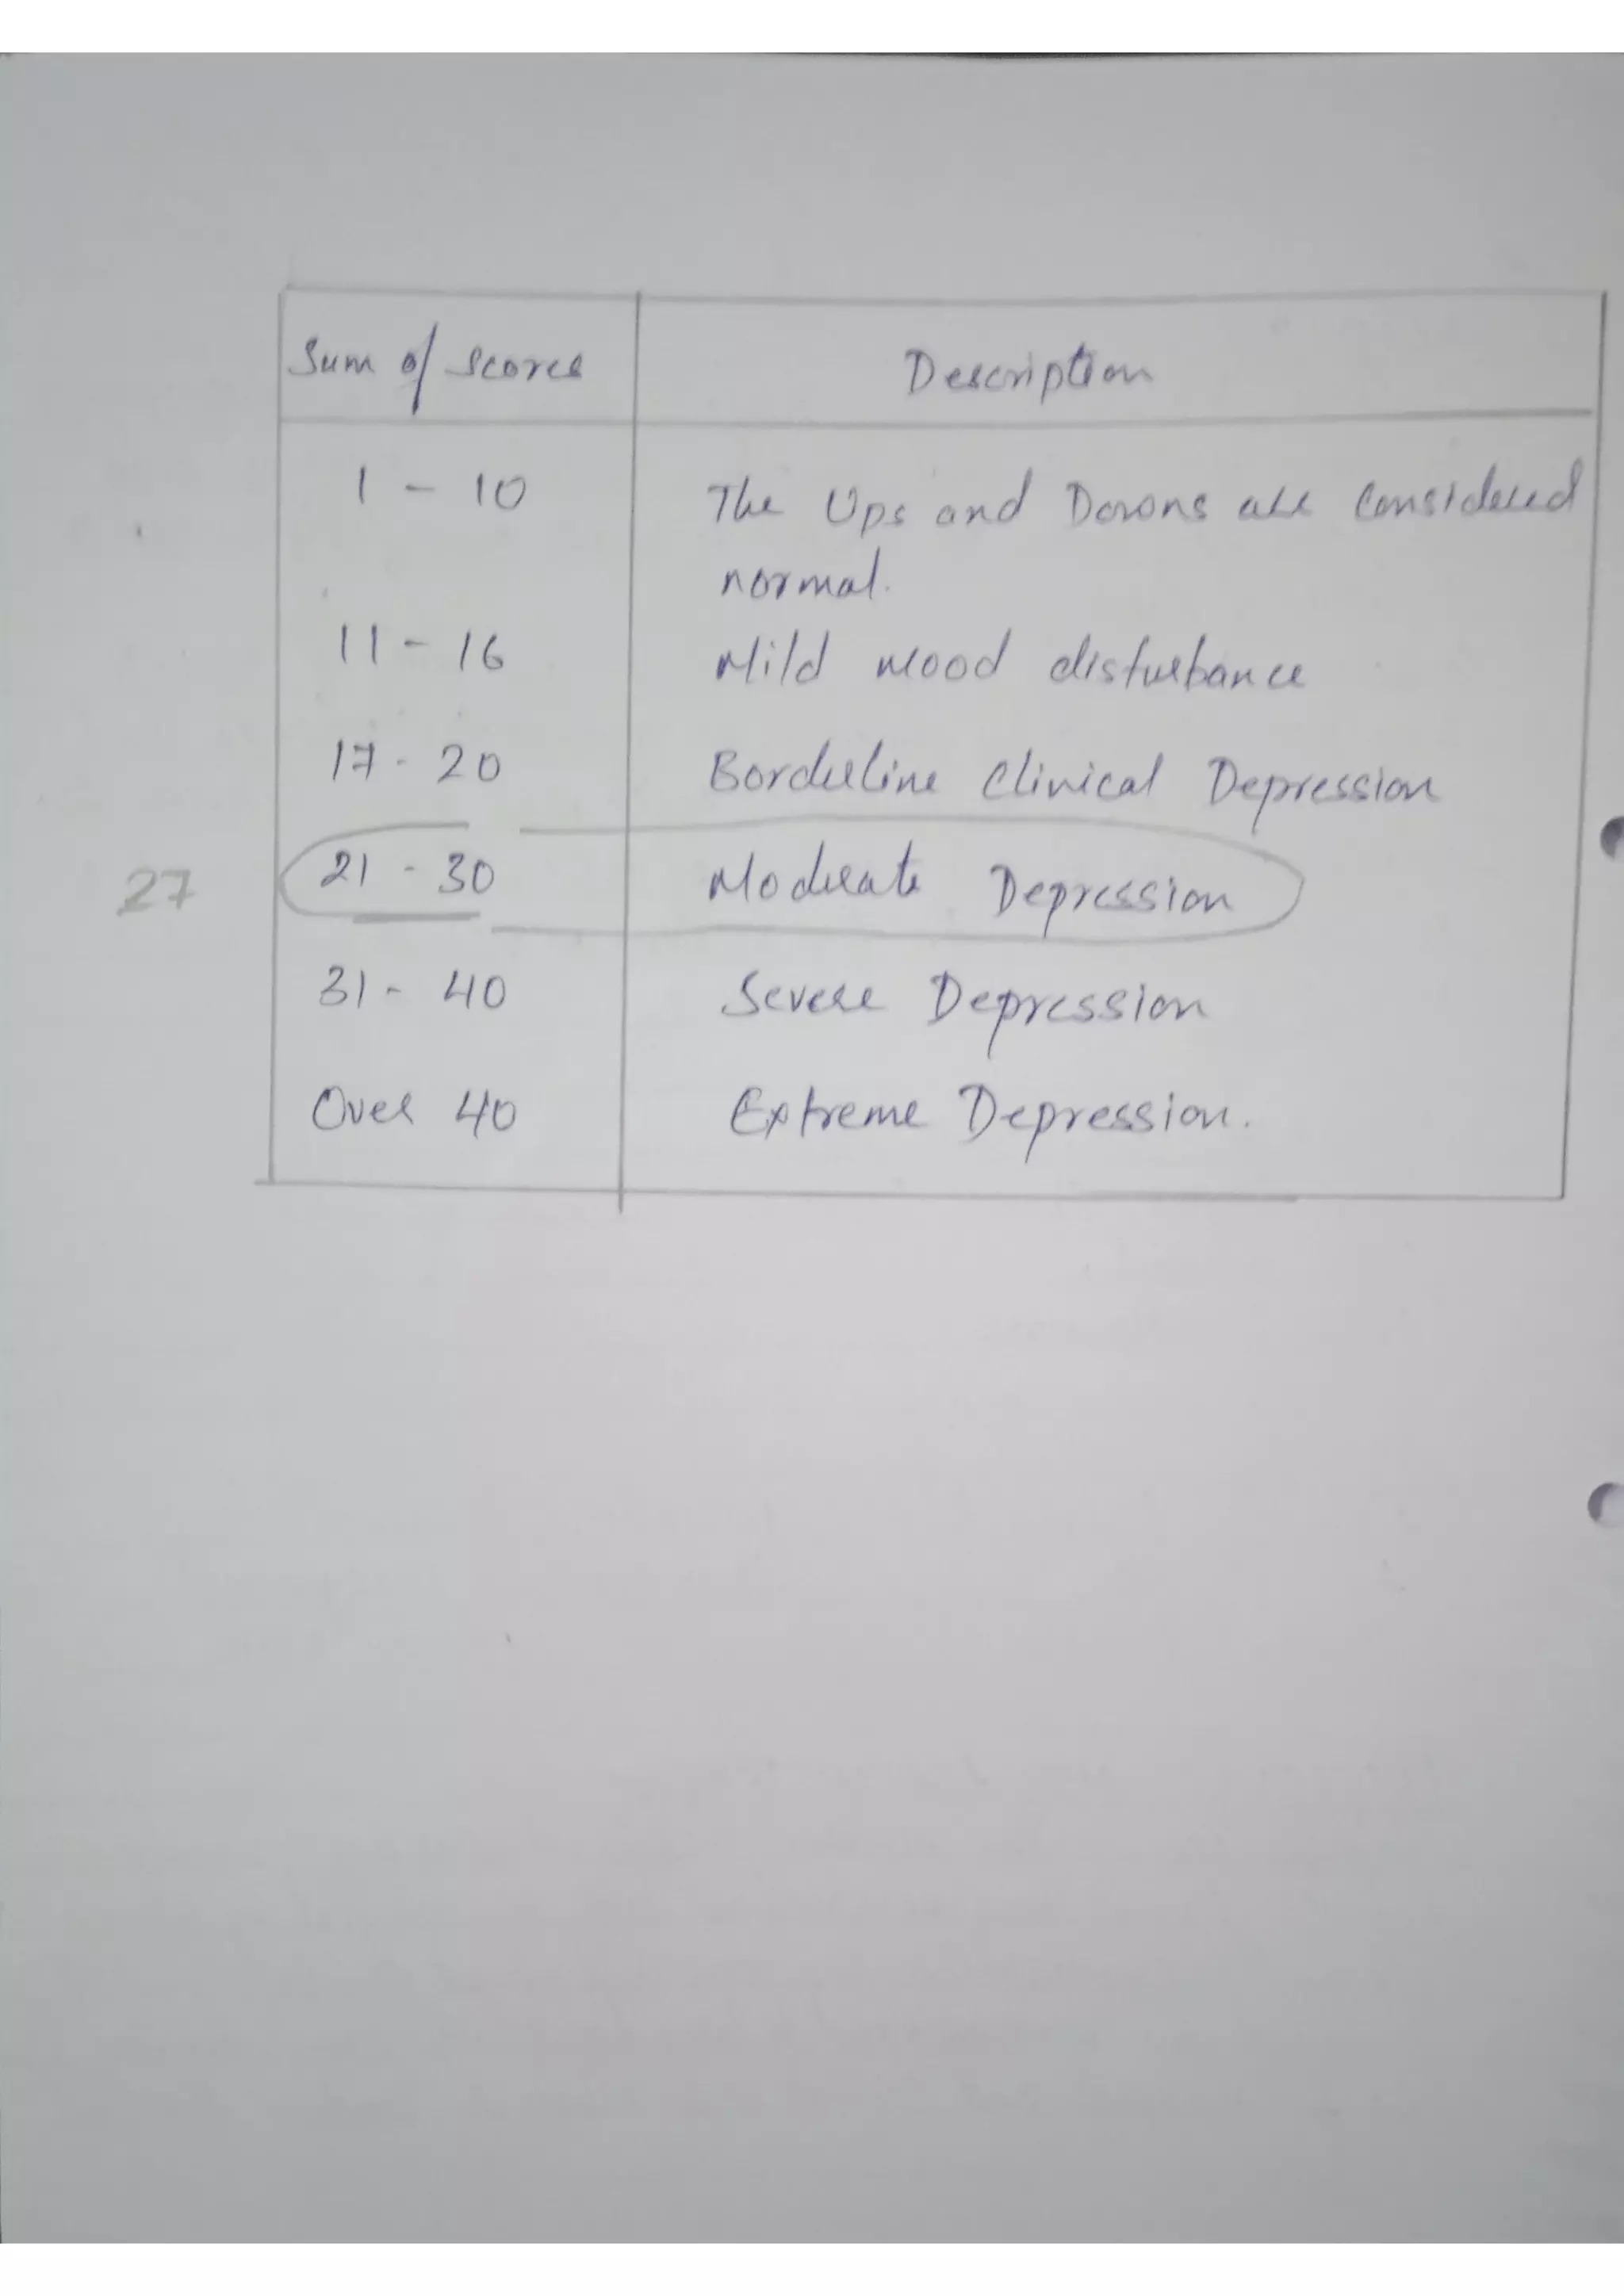 Sum of scores Description
1 - 10 The Ups and Downs are Considered
normal.
11 - 16 Mild Mood disturbance
17 - 20 Borderline Clinical Depression
27 21 - 30 Moderate Depression
31 - 40 Severe Depression
Over 40 Extreme Depression.